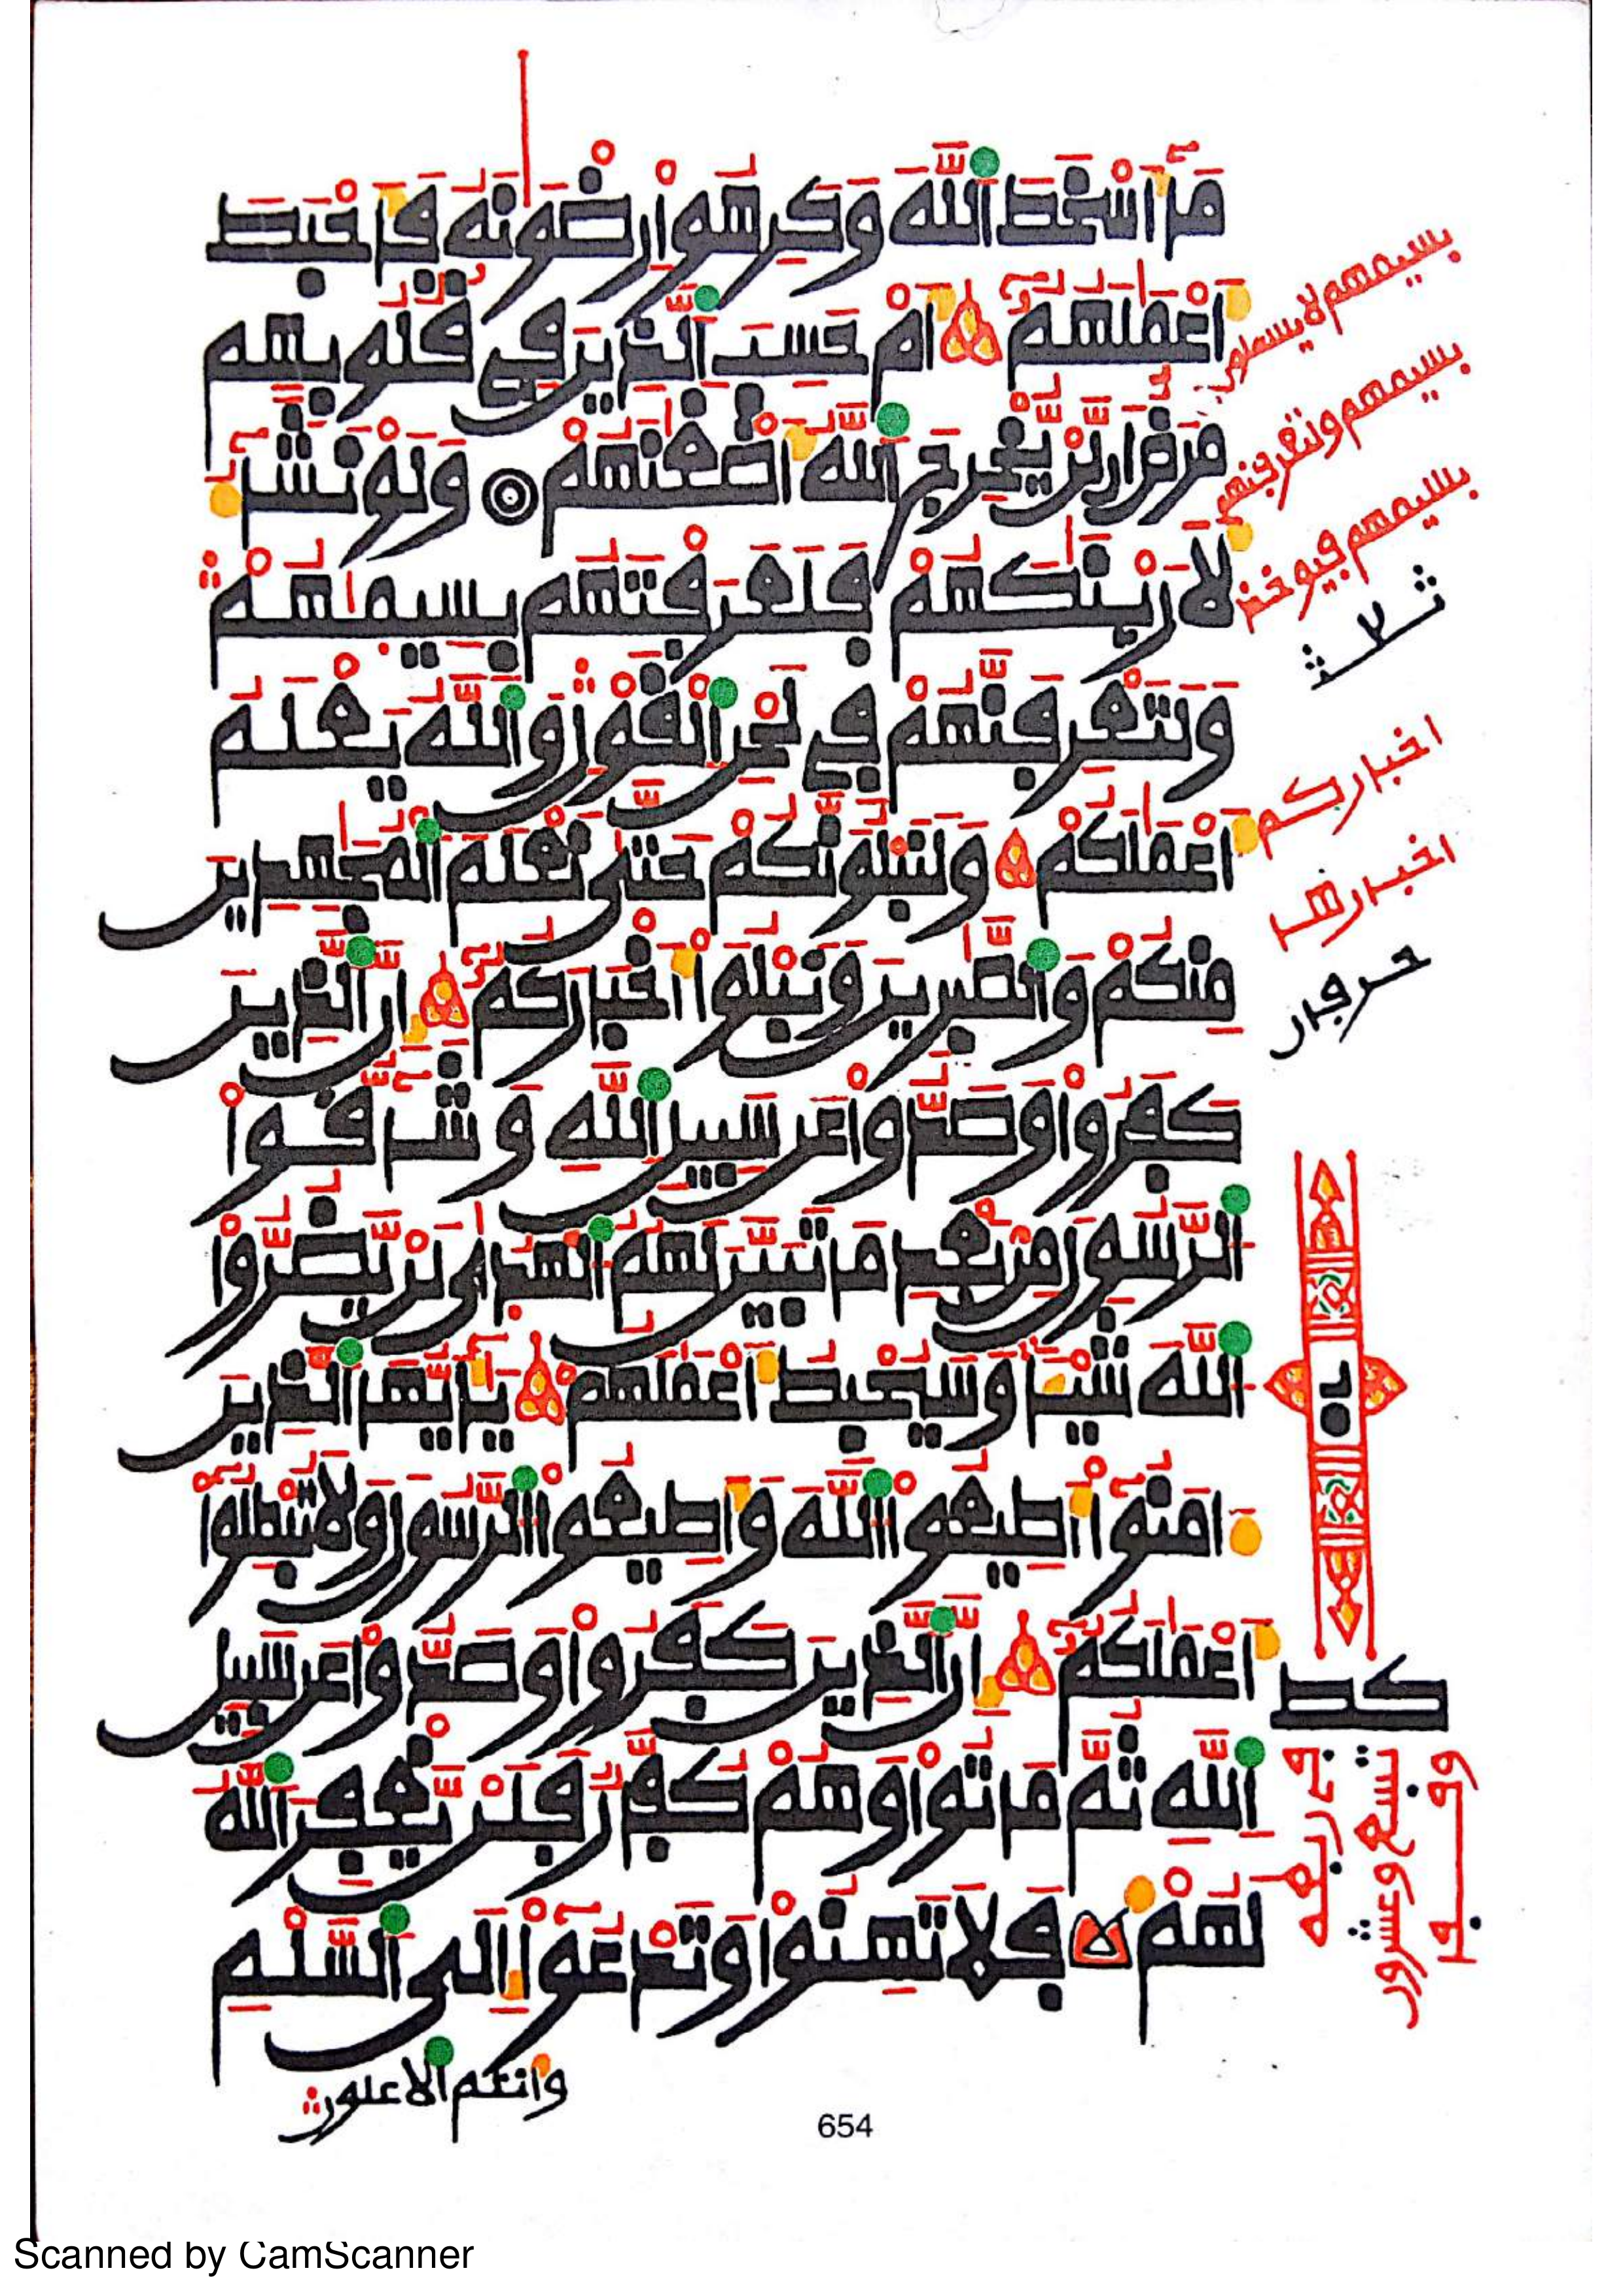 مَآ أَسْخَطَ ٱللَّهَ وَكَرِهُوا۟ رِضْوَٰنَهُۥ فَأَحْبَطَ
أَعْمَٰلَهُمُۥٓ أَمْ حَسِبَ ٱلَّذِينَ فِي قُلُوبِهِم
مَّرَضٌ أَن لَّنْ يُّخْرِجَ ٱللَّهُ أَضْغَٰنَهُمْ وَلَوْ نَشَآءُ
لَأَرَيْنَٰكَهُمْ فَلَعَرَفْتَهُم بِسِيمَٰهُمْ
وَلَتَعْرِفَنَّهُمْ فِي لَحْنِ ٱلْقَوْلِ وَٱللَّهُ يَعْلَمُ
أَعْمَٰلَكُمْ وَلَنَبْلُوَنَّكُمْ حَتَّىٰ نَعْلَمَ ٱلْمُجَٰهِدِينَ
مِنكُمْ وَٱلصَّٰبِرِينَ وَنَبْلُوَا۟ أَخْبَارَكُمُۥٓ إِنَّ ٱلَّذِينَ
كَفَرُوا۟ وَصَدُّوا۟ عَن سَبِيلِ ٱللَّهِ وَشَآقُّوا۟
ٱلرَّسُولَ مِنۢ بَعْدِ مَا تَبَيَّنَ لَهُمُ ٱلْهُدَىٰ لَنْ يَّضُرُّوا۟
ٱللَّهَ شَيْـًٔا وَسَيُحْبِطُ أَعْمَٰلَهُمْ يَٰٓأَيُّهَا ٱلَّذِينَ
ءَامَنُوٓا۟ أَطِيعُوا۟ ٱللَّهَ وَأَطِيعُوا۟ ٱلرَّسُولَ وَلَا تُبْطِلُوٓا۟
أَعْمَٰلَكُمُۥٓ إِنَّ ٱلَّذِينَ كَفَرُوا۟ وَصَدُّوا۟ عَن سَبِيلِ
ٱللَّهِ ثُمَّ مَاتُوا۟ وَهُمْ كُفَّارٌ فَلَنْ يَّغْفِرَ ٱللَّهُ
لَهُمْ فَلَا تَهِنُوا۟ وَتَدْعُوٓا۟ إِلَى ٱلسَّلْمِ
وأنتم الأعلون
بسيمهم لا يسئلون
بسيمهم ولتعرفنهم
بسيمهم فيوخذ
ثلاث
اخباركم
اخبارها
حرفان
كط
654
Scanned by CamScanner